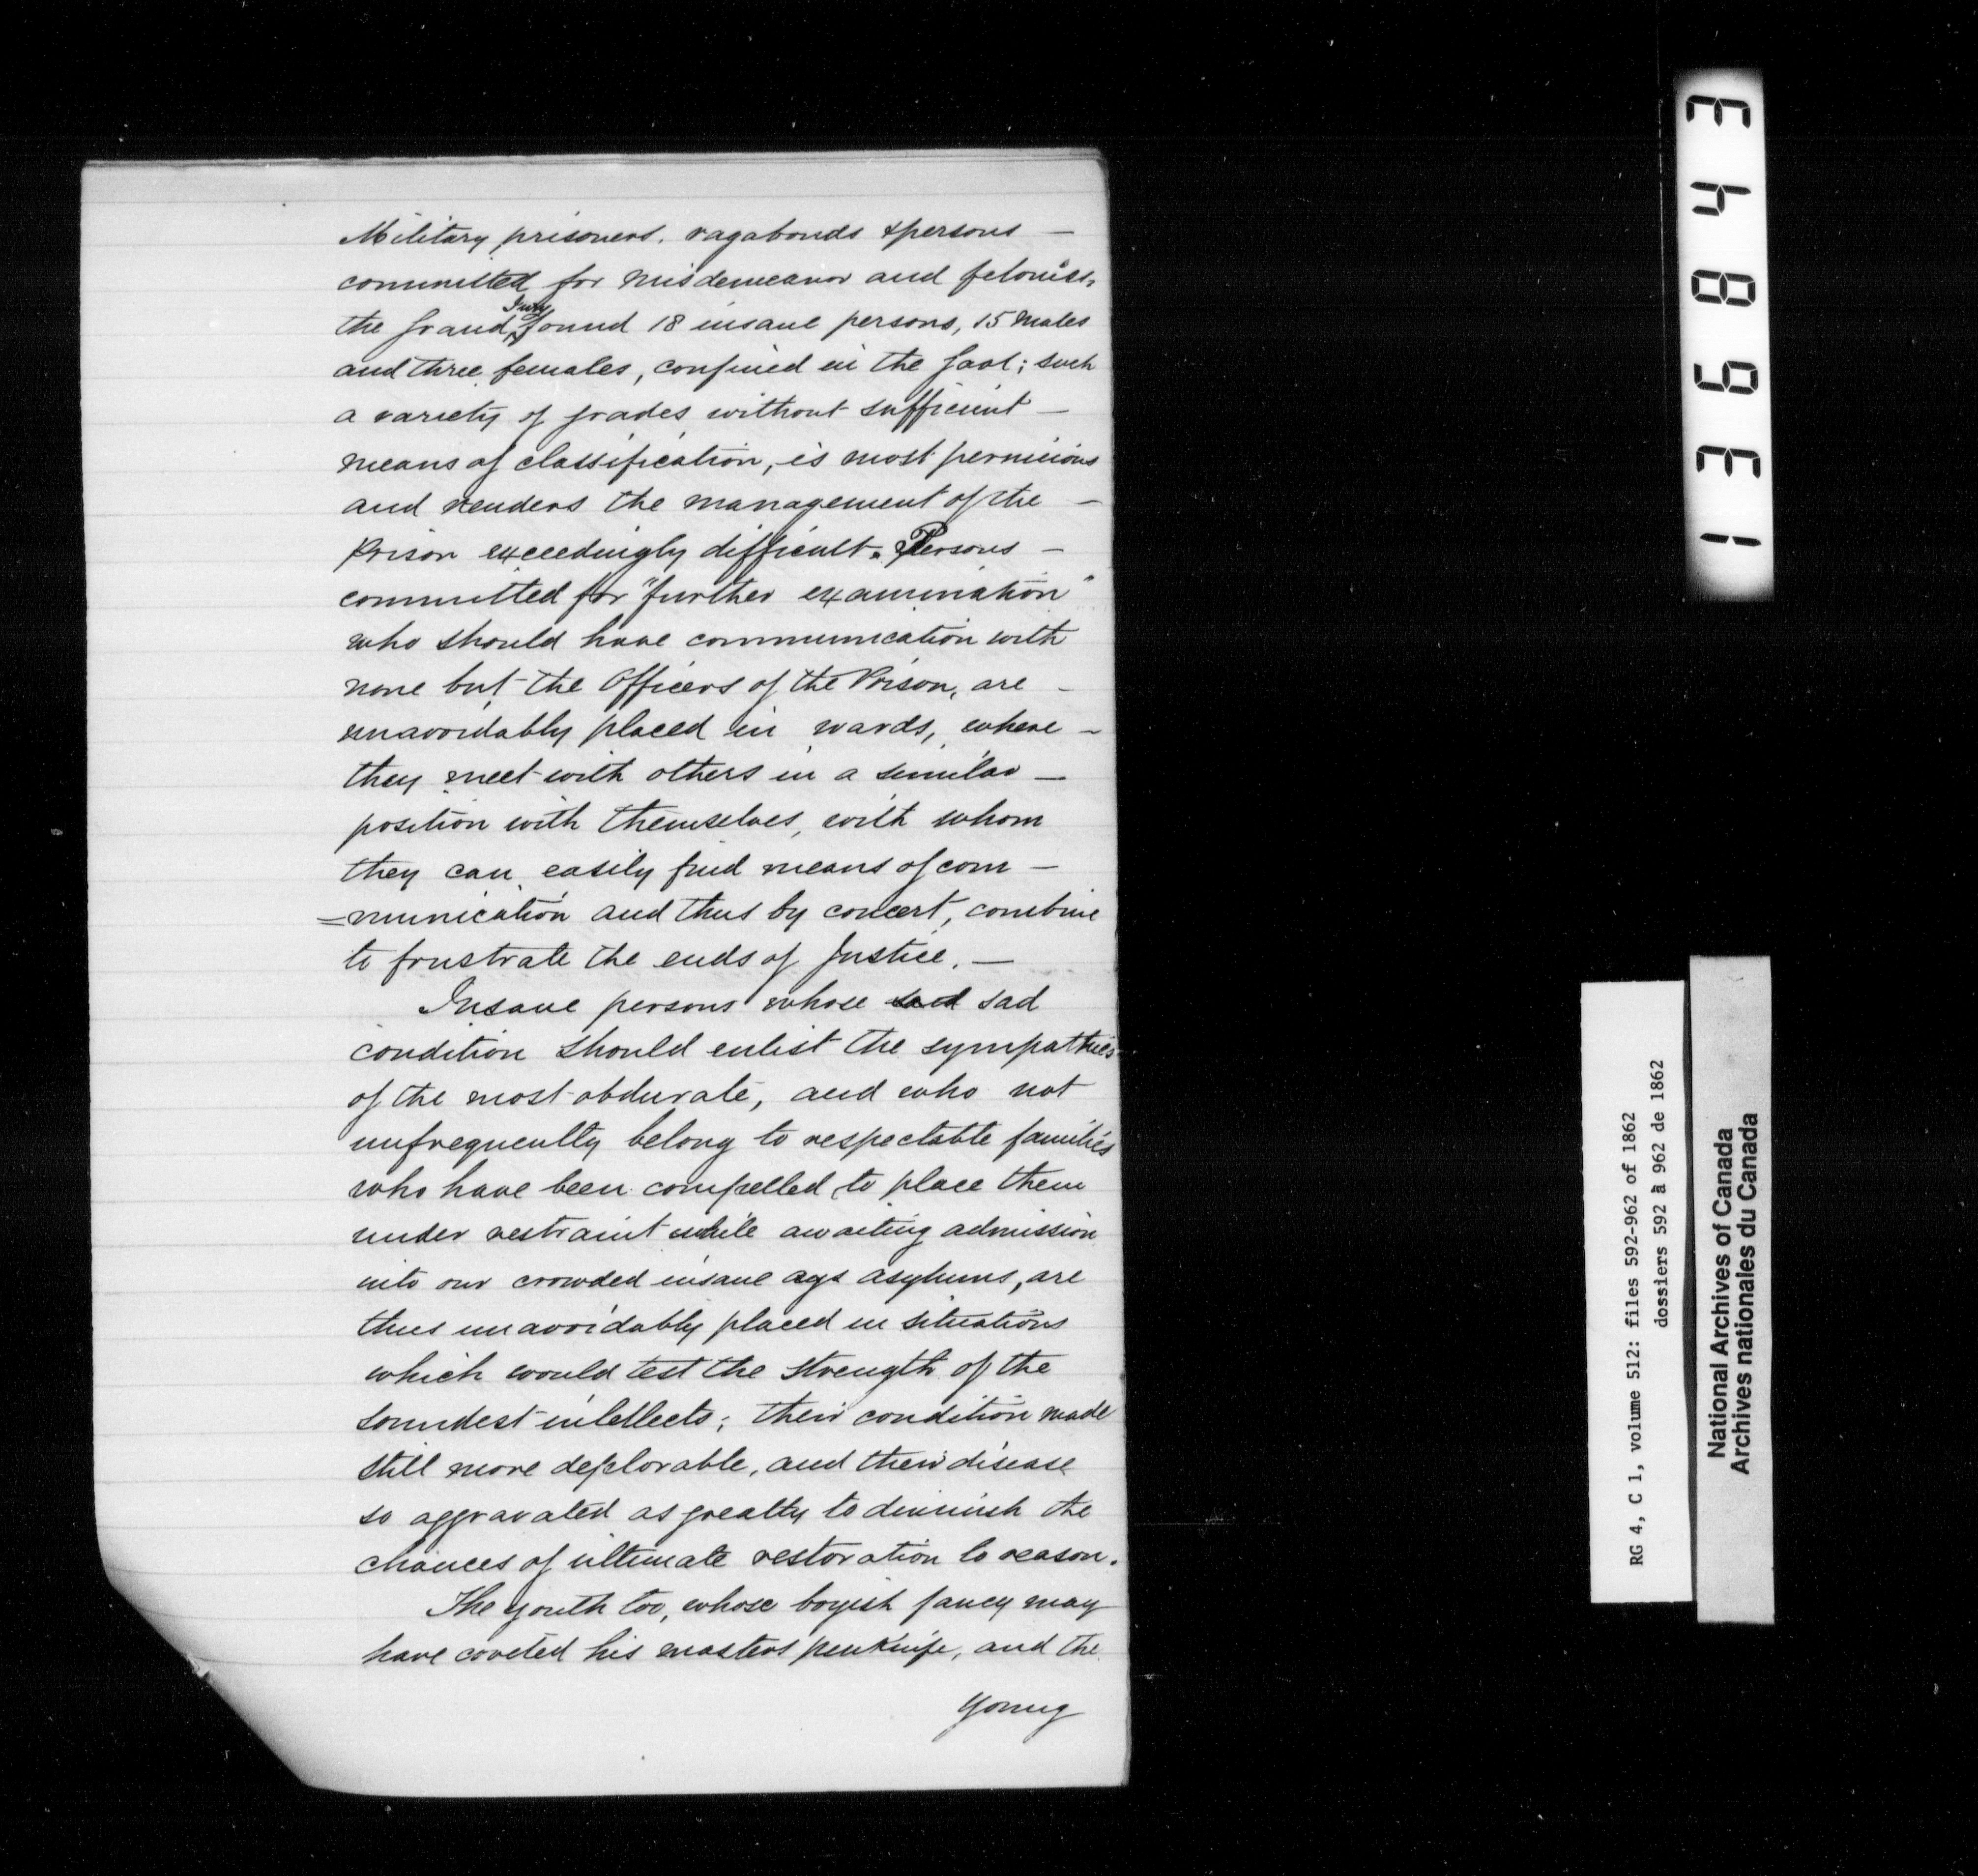 Military prisoners, vagabonds & persons —
committed for misdemeanor and felonies,
the Grand Jury found 18 insane persons, 15 Males
and three females, confined in the Gaol; such
a variety of grades without sufficient —
means of classification, is most pernicious
and renders the management of the —
Prison exceedingly difficult. Persons —
committed for "further examination"
who should have communication with
none but the Officers of the Prison, are —
unavoidably placed in wards, where —
they meet with others in a similar —
position with themselves, with whom
they can easily find means of com —
=munication and thus by concert, combine
to frustrate the ends of Justice. —
Insane persons whose said sad
condition should enlist the sympathies
of the most obdurate, and who not
unfrequently belong to respectable families
who have been compelled to place them
under restraint while awaiting admission
into our crowded insane ays asylums, are
thus unavoidably placed in situations
which would test the strength of the
soundest intellects; their condition made
still more deplorable, and their disease
so aggravated as greatly to diminish the
chances of ultimate restoration to reason.
The youth too, whose boyish fancy may
have coveted his masters penknife, and the
young
136843
RG 4, C 1, volume 512: files 592-962 of 1862
dossiers 592 à 962 de 1862
National Archives of Canada
Archives nationales du Canada